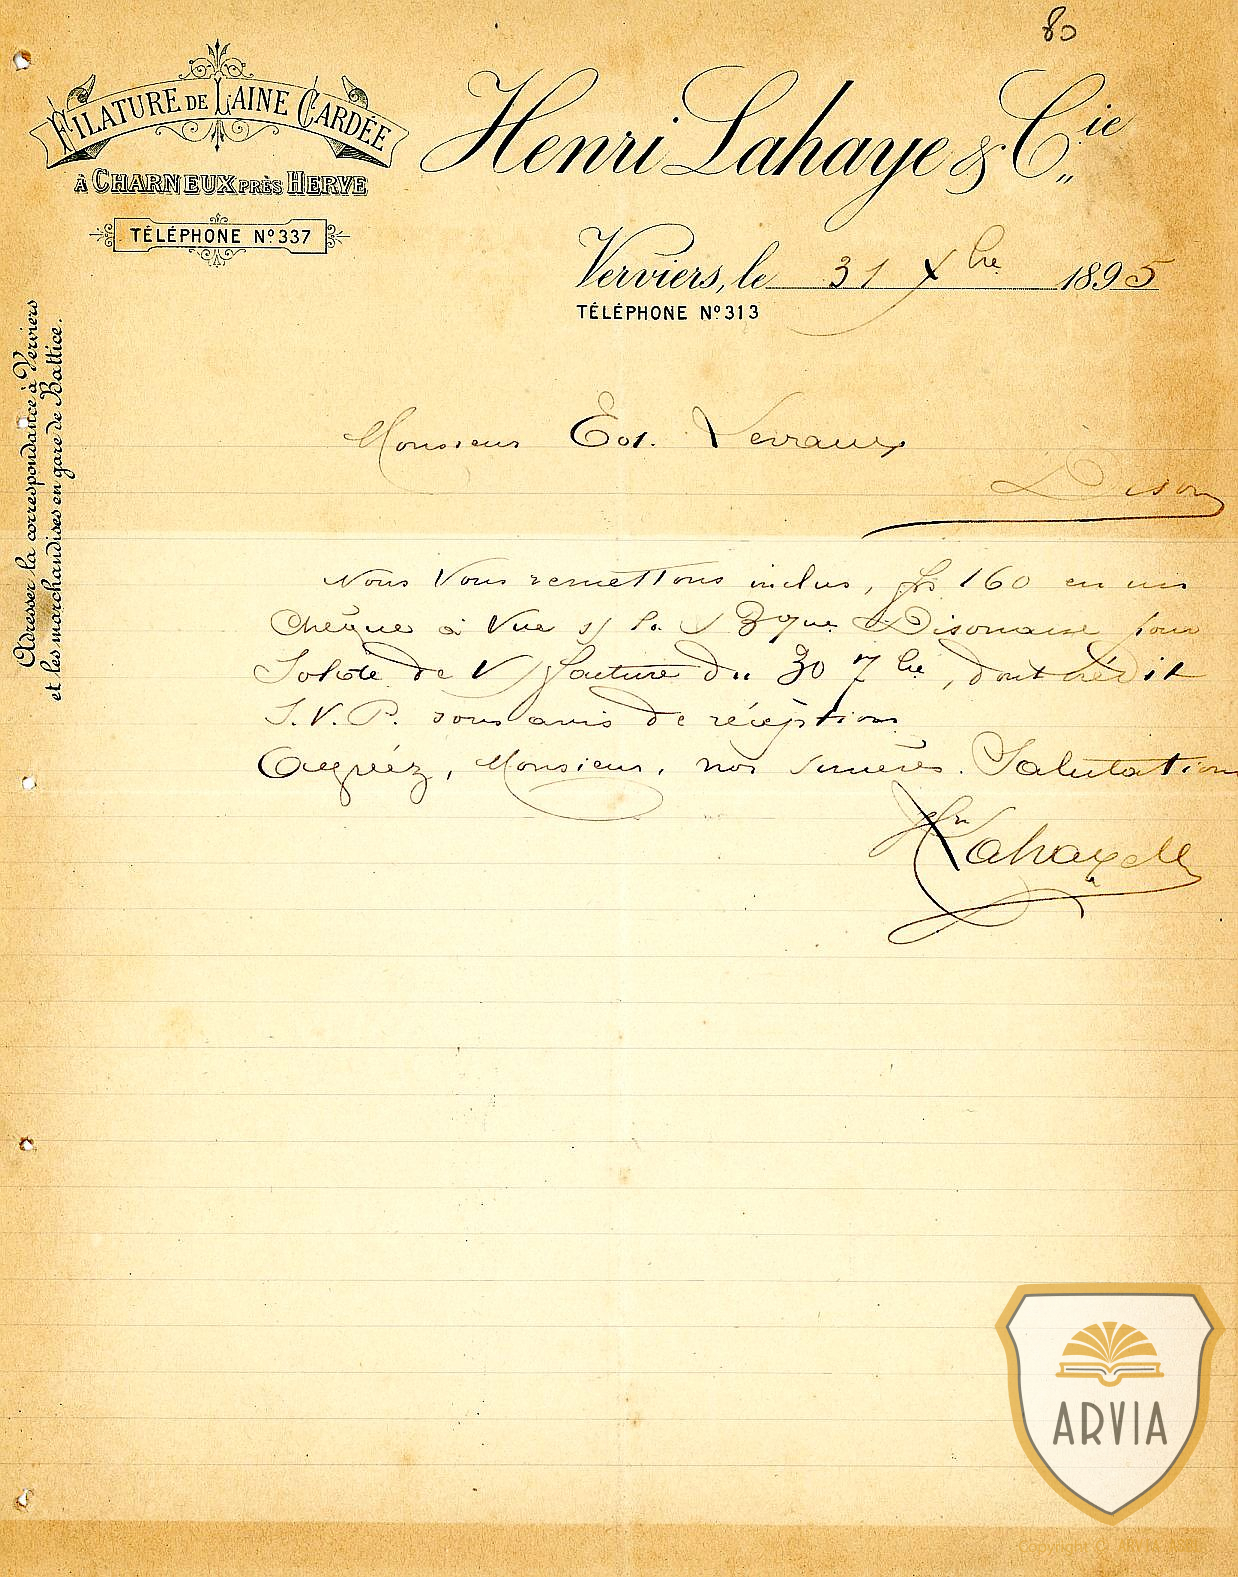 80
FILATURE DE LAINE CARDÉE
À CHARNEUX PRÈS HERVE
TÉLÉPHONE Nº 337
Henri Lahaye & Cie
Verviers, le 31 Xbre 1895
TÉLÉPHONE Nº 313
Adresser la correspondance à Verviers
et les marchandises en gare de Battice.
Monsieur Ed. Levraux
Dison
Nous Vous remettons inclus, frs 160 en un
Chèque à Vue s/ la Bque Disonaise pour
Solde de V/ facture du 30 7bre, dont crédit
S.V.P. sous avis de réception
Agréez, Monsieur, nos sincères Salutations
Hri Lahaye & Cie
ARVIA